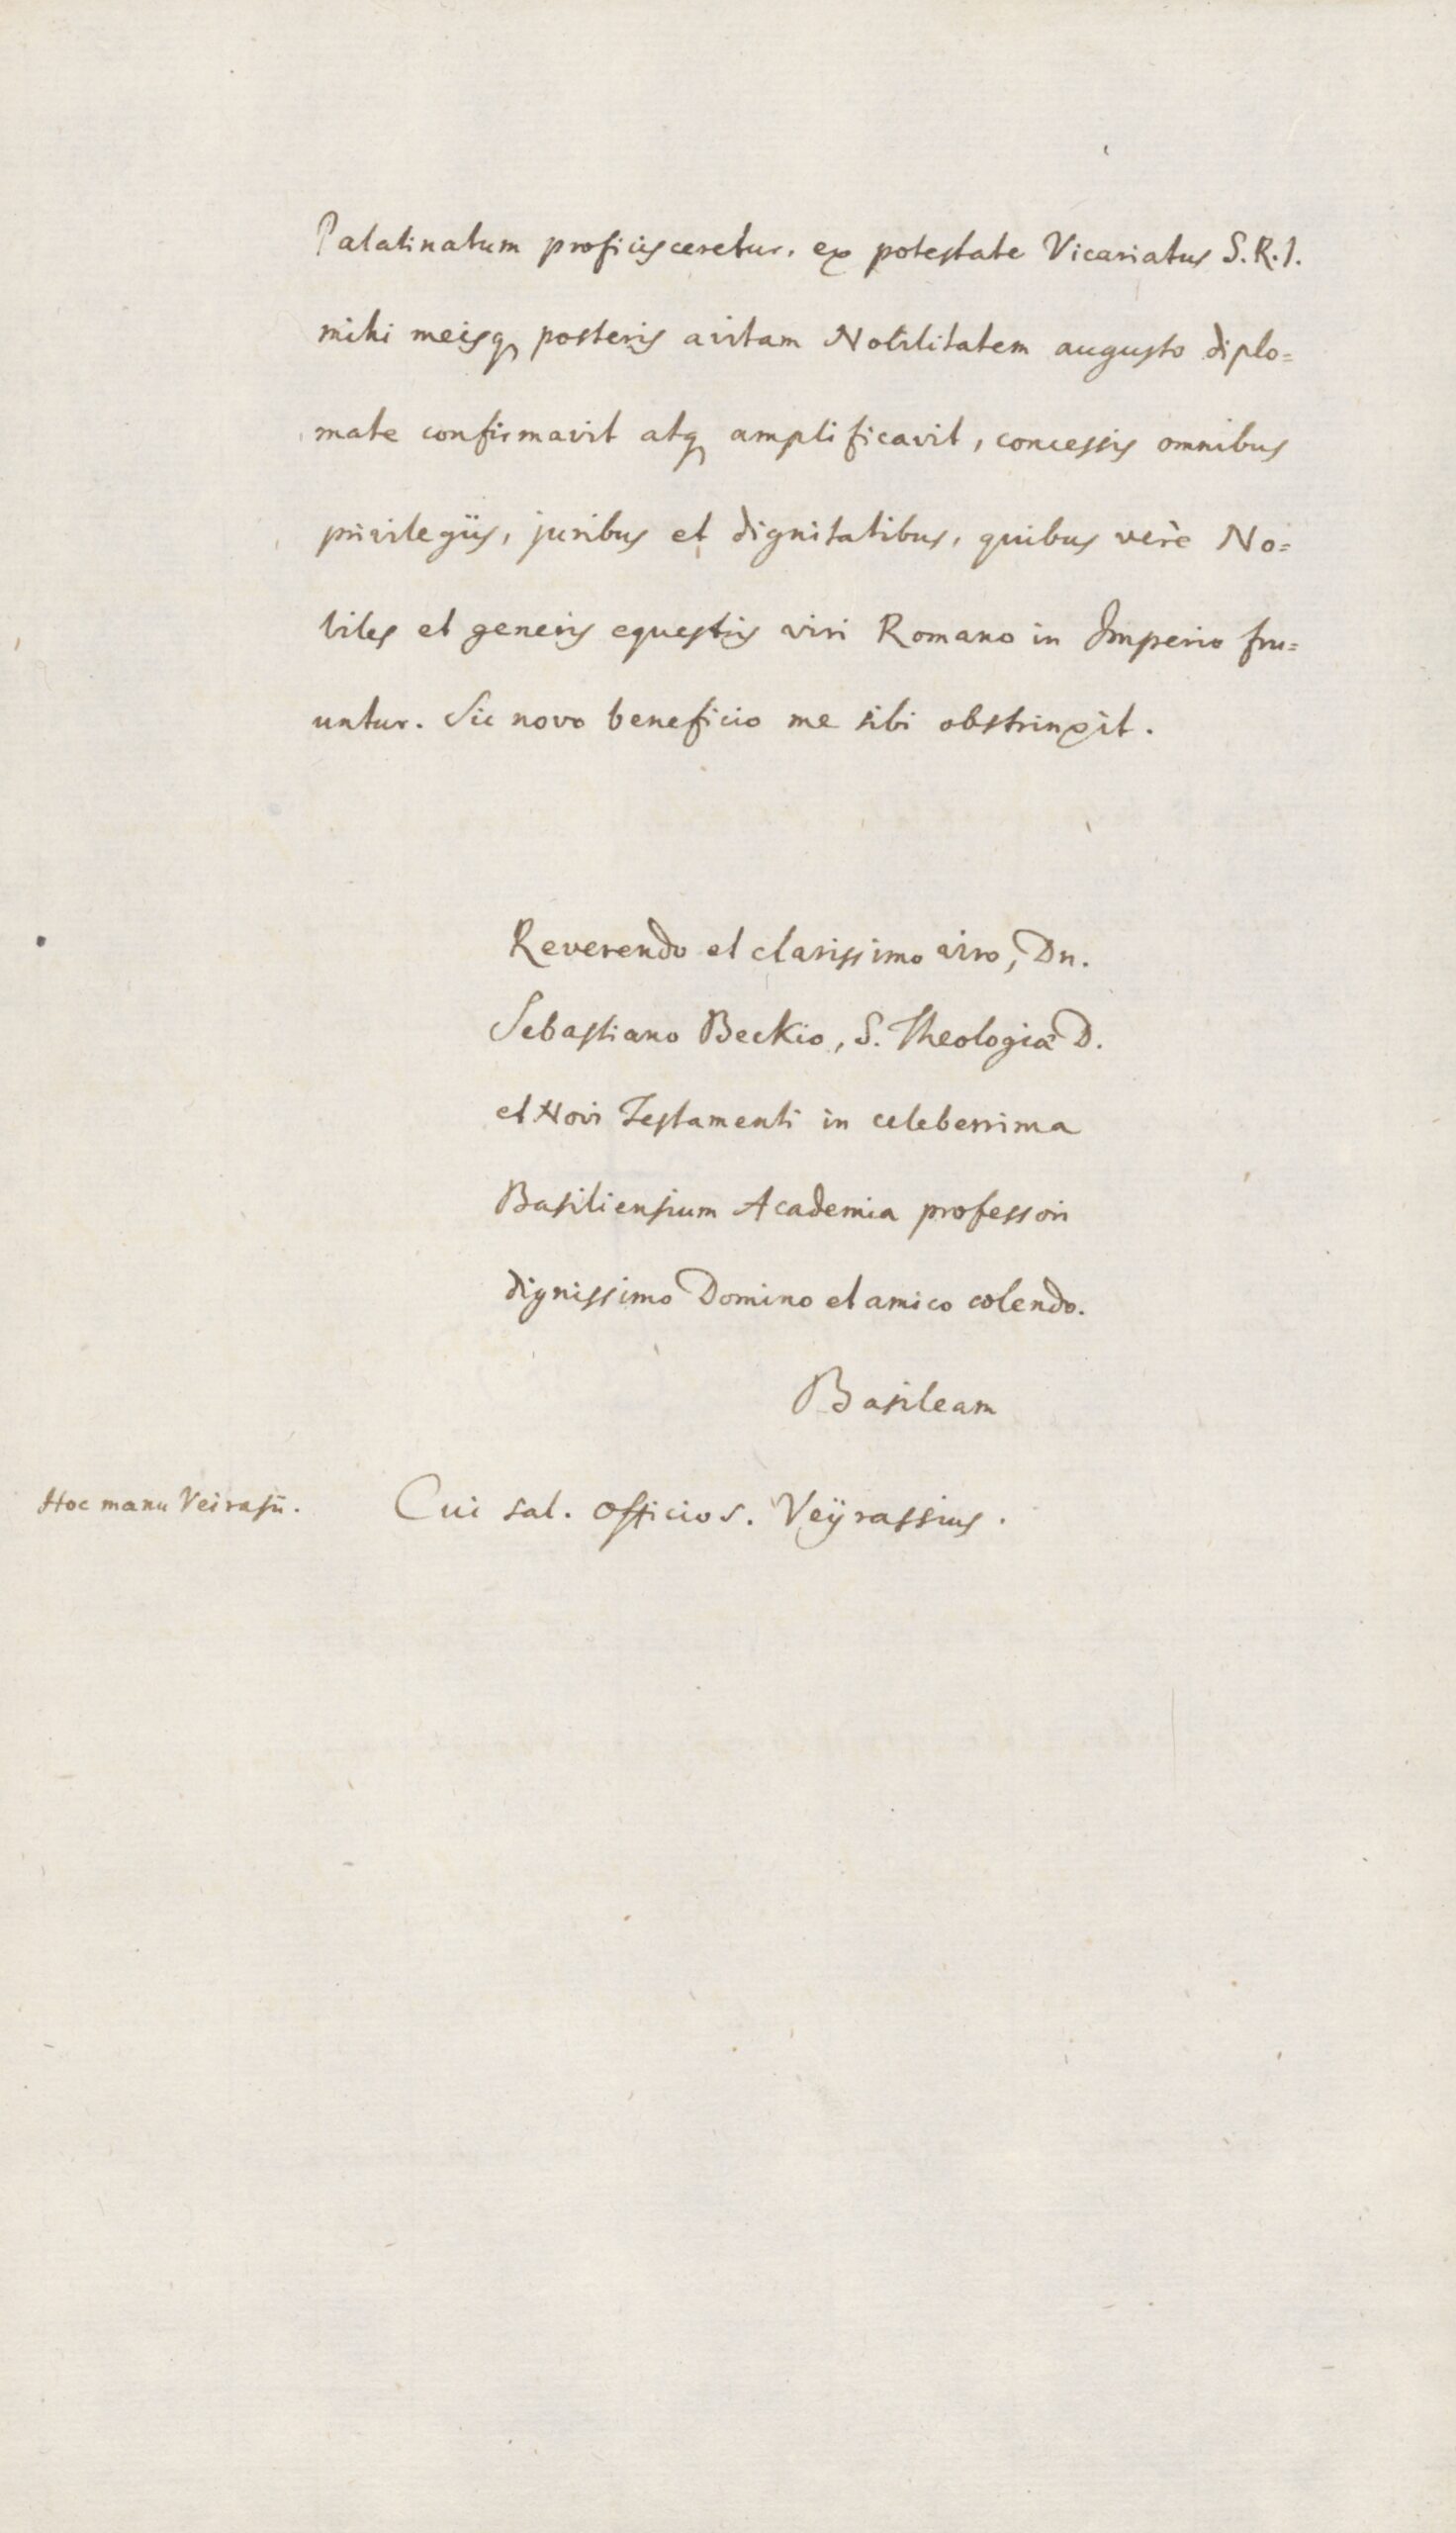 Palatinatum proficisceretur, ex potestate Vicariatus S.R.I.
mihi meisq, posteris avitam Nobilitatem augusto diplo=
mate confirmavit atq, amplificavit, concessis omnibus
privilegiis, juribus et dignitatibus, quibus verè No=
biles et generis equestris viri Romano in Imperio fru=
untur. Sic novo beneficio me sibi obstrinxit.
Reverendo et clarissimo viro, Dn.
Sebastiano Beckio, S. Theologiæ D.
et Novi Testamenti in celeberrima
Basiliensium Academia professori
dignissimo Domino et amico colendo.
Basileam
Hoc manu Veirasii. Cui sal. officios. Veÿrassius.